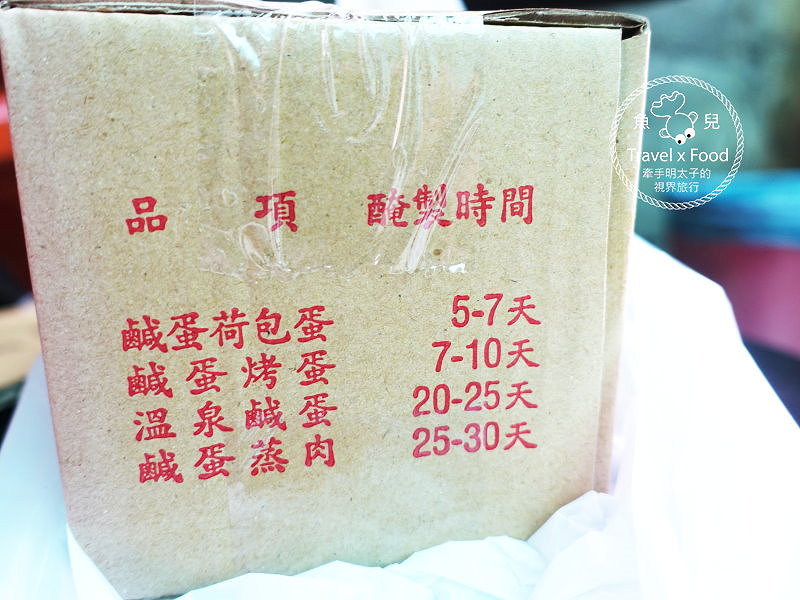 品項 醃製時間
鹹蛋荷包蛋 5-7天
鹹蛋烤蛋 7-10天
溫泉鹹蛋 20-25天
鹹蛋蒸肉 25-30天
魚兒
Travel x Food
牽手明太子的
視界旅行